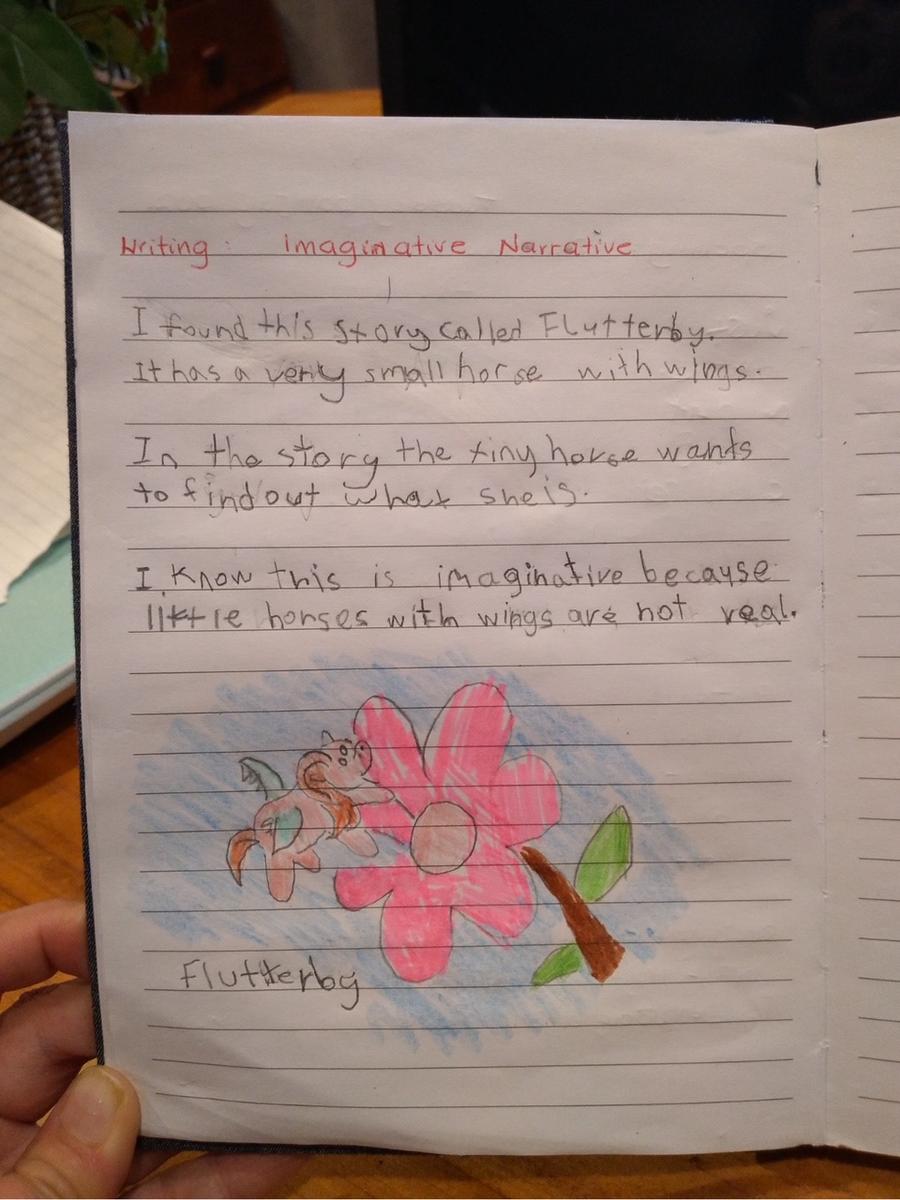 Writing: Imaginative Narrative
I found this story called Flutterby.
It has a very small horse with wings.
In the story the tiny horse wants
to find out what she is.
I know this is imaginative because
little horses with wings are not real.
Flutterby